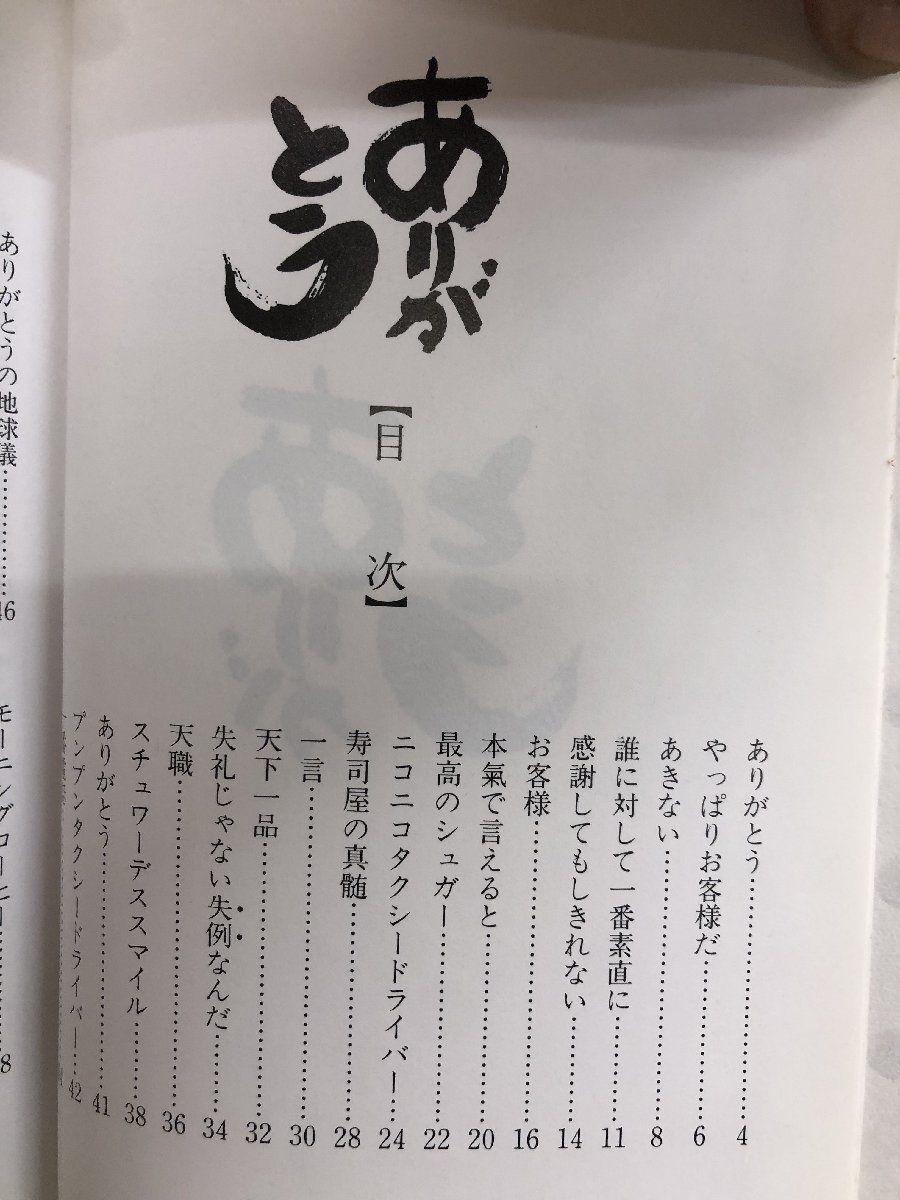 ありが
とう
【目次】
ありがとう……………………4
やっぱりお客様だ……………………6
あきない……………………8
誰に対して一番素直に……………………11
感謝してもしきれない……………………14
お客様……………………16
本氣で言えると……………………20
最高のシュガー……………………22
ニコニコタクシードライバー……………………24
寿司屋の真髄……………………28
一言……………………30
天下一品……………………32
失礼じゃない失例なんだ……………………34
天職……………………36
スチュワーデススマイル……………………38
ありがとう……………………41
プンプンタクシードライバー……………………42
ありがとうの地球儀……………………46
モーニングコーヒー